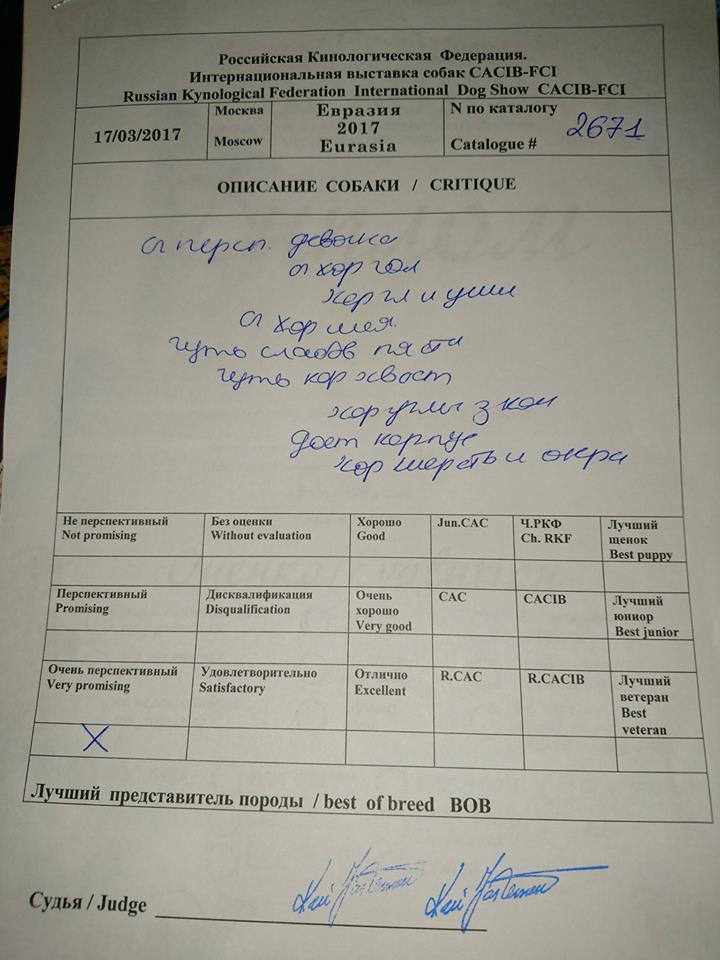 Российская Кинологическая Федерация.
Интернациональная выставка собак CACIB-FCI
Russian Kynological Federation International Dog Show CACIB-FCI
17/03/2017
Москва
Moscow
Евразия
2017
Eurasia
N по каталогу
Catalogue # 2671
ОПИСАНИЕ СОБАКИ / CRITIQUE
персп. девочка
хор гол
хор гл и уши
хор шея.
чуть слабов пясти
чуть кор хвост
хор углы з кон
дост корпус
хор шерсть и окра
Не перспективный
Not promising
Без оценки
Without evaluation
Хорошо
Good
Jun.CAC
Ч.РКФ
Ch. RKF
Лучший
щенок
Best puppy
Перспективный
Promising
Дисквалификация
Disqualification
Очень
хорошо
Very good
CAC
CACIB
Лучший
юниор
Best junior
Очень перспективный
Very promising
Удовлетворительно
Satisfactory
Отлично
Excellent
R.CAC
R.CACIB
Лучший
ветеран
Best
veteran
X
Лучший представитель породы / best of breed BOB
Судья / Judge